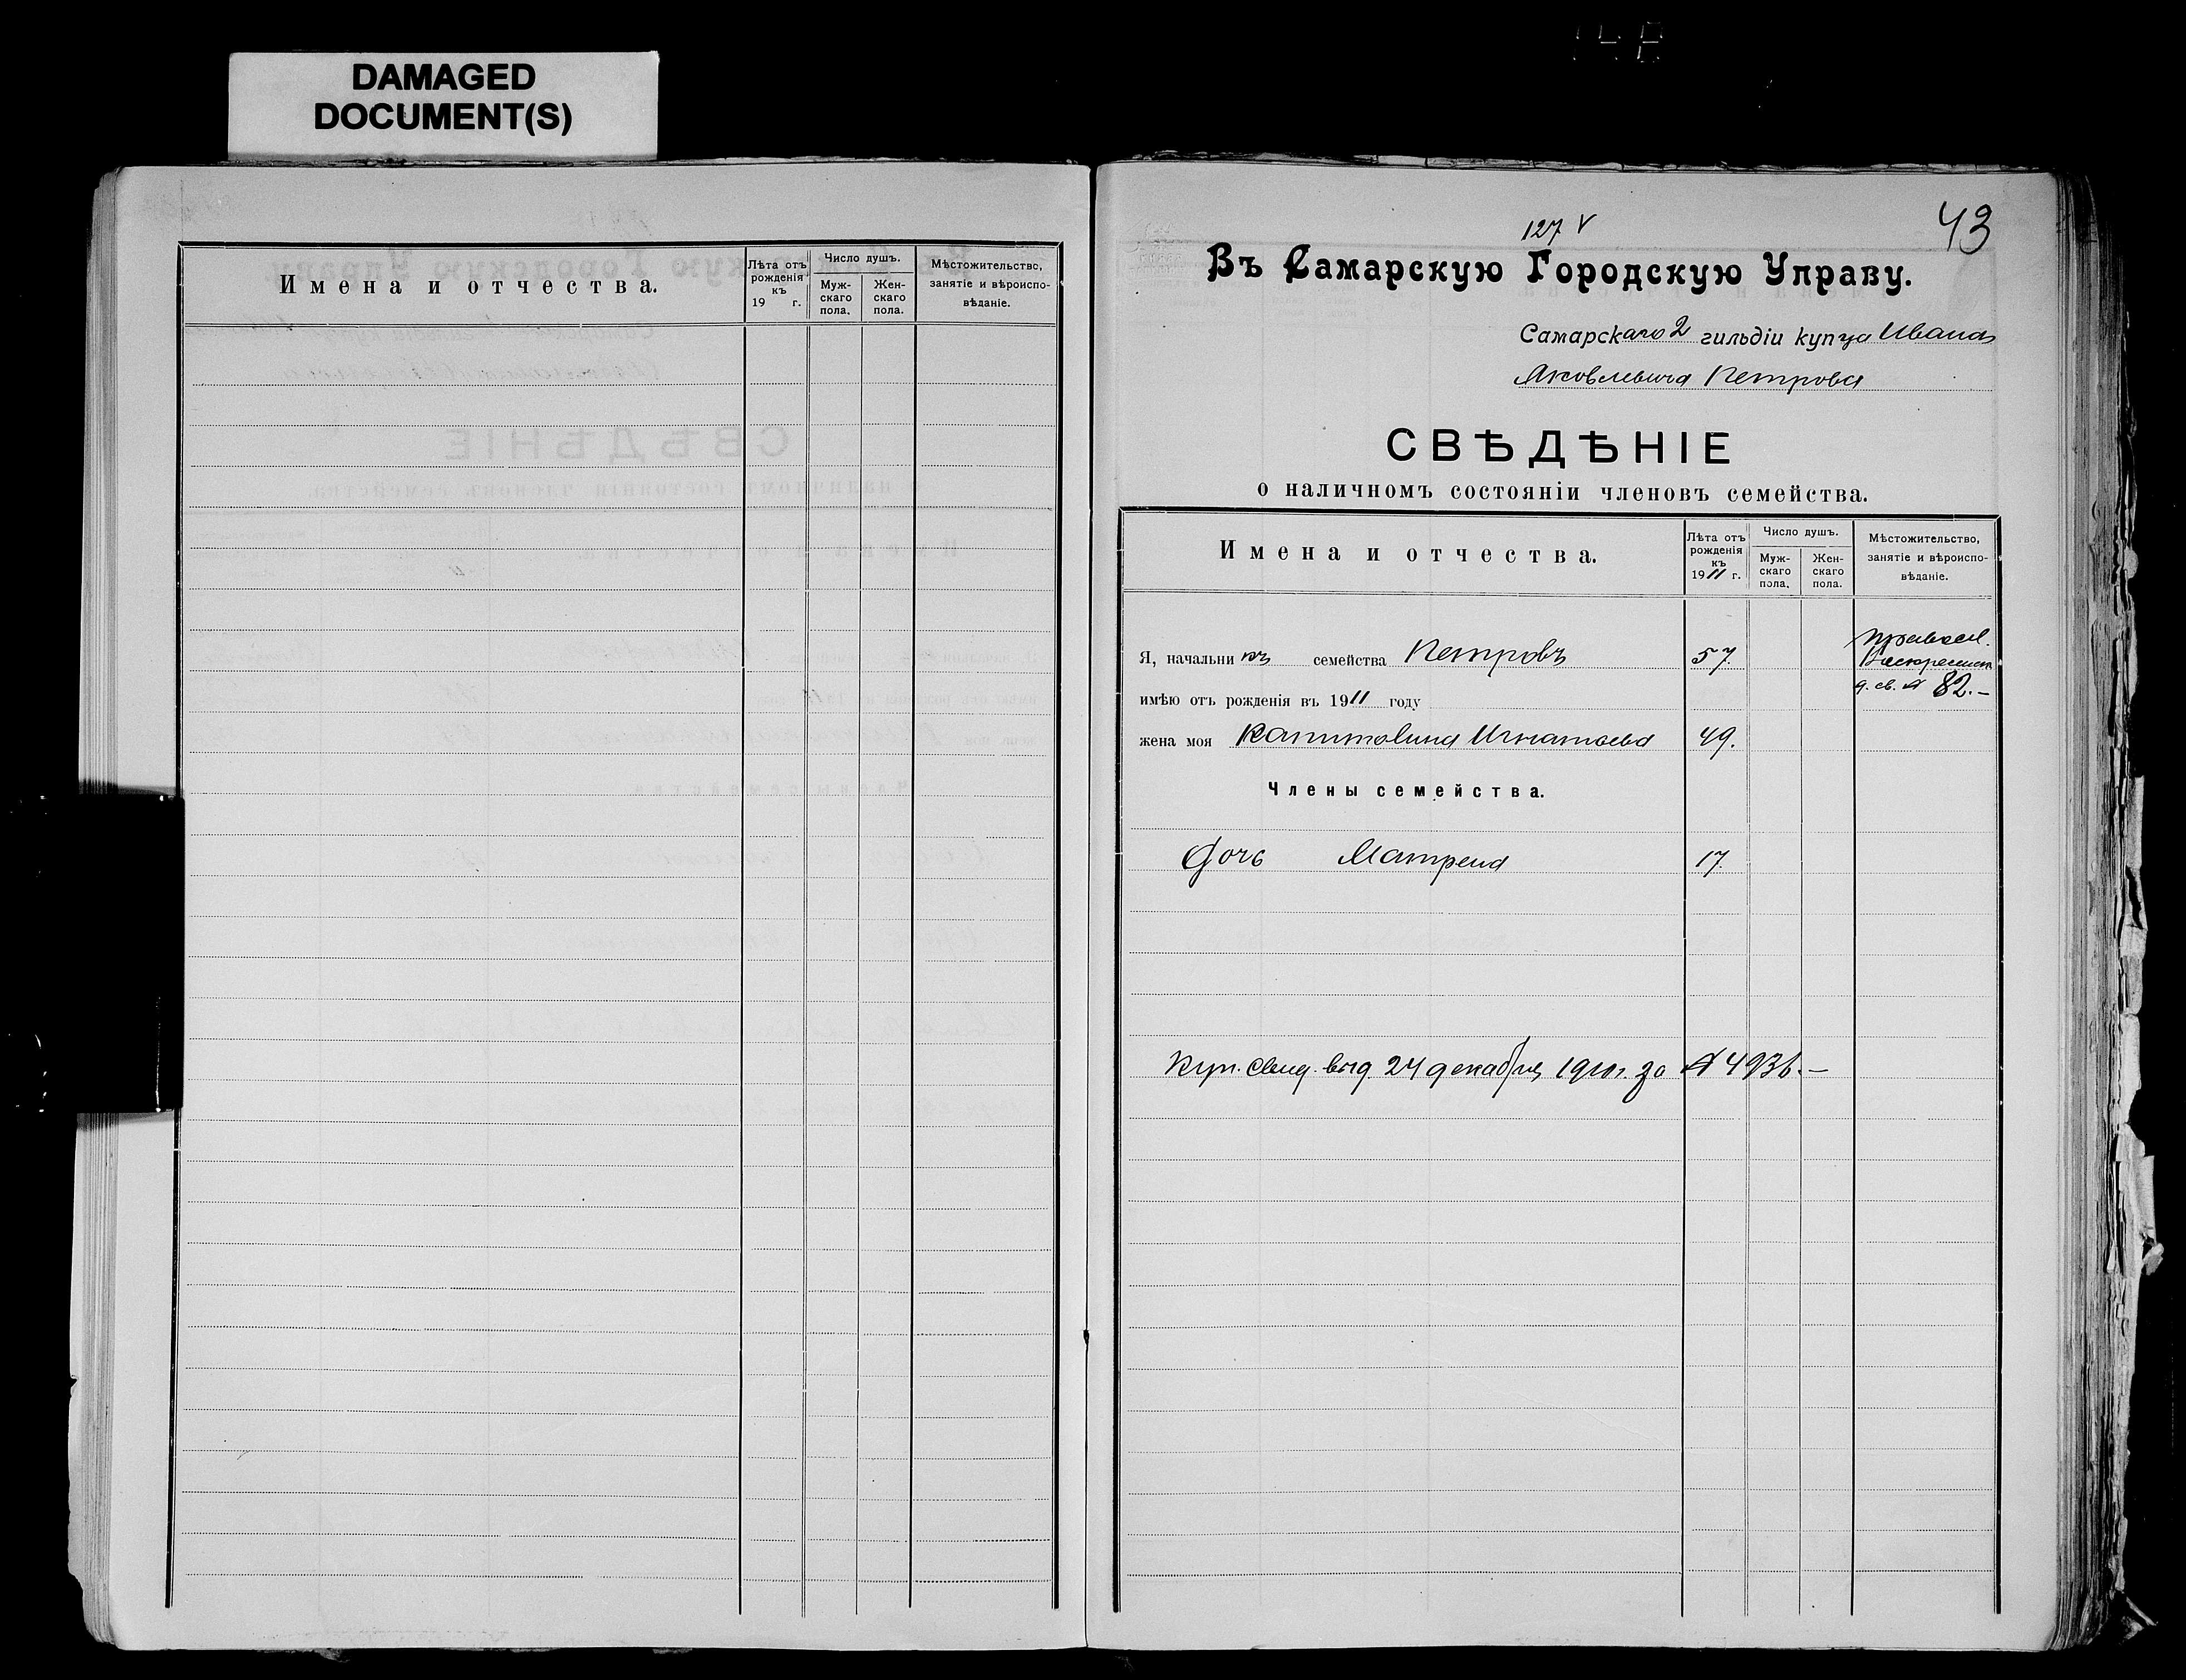 DAMAGED
DOCUMENT(S)
Имена и отчества.
Лѣта отъ рожденія къ 19 г.
Число душъ.
Муж-скаго пола.
Жен-скаго пола.
Мѣстожительство, занятіе и вѣроиспо-вѣданіе.
43
127 V
Въ Самарскую Городскую Управу.
Самарскаго 2 гильдіи купца Ивана
Яковлевича Петрова
СВѢДѢНІЕ
о наличномъ состояніи членовъ семейства.
Имена и отчества.
Лѣта отъ рожденія къ 1911 г.
Число душъ.
Муж-скаго пола.
Жен-скаго пола.
Мѣстожительство, занятіе и вѣроиспо-вѣданіе.
Я, начальникъ семейства Петровъ 57.
правосл.
д. св. № 82.-
имѣю отъ рожденія въ 1911 году
жена моя Капитолина Игнатьева 49.
Члены семейства.
Дочь Матрена 17.
Куп. свид. выд. 24 декабря 1910 г. за № 4936.-